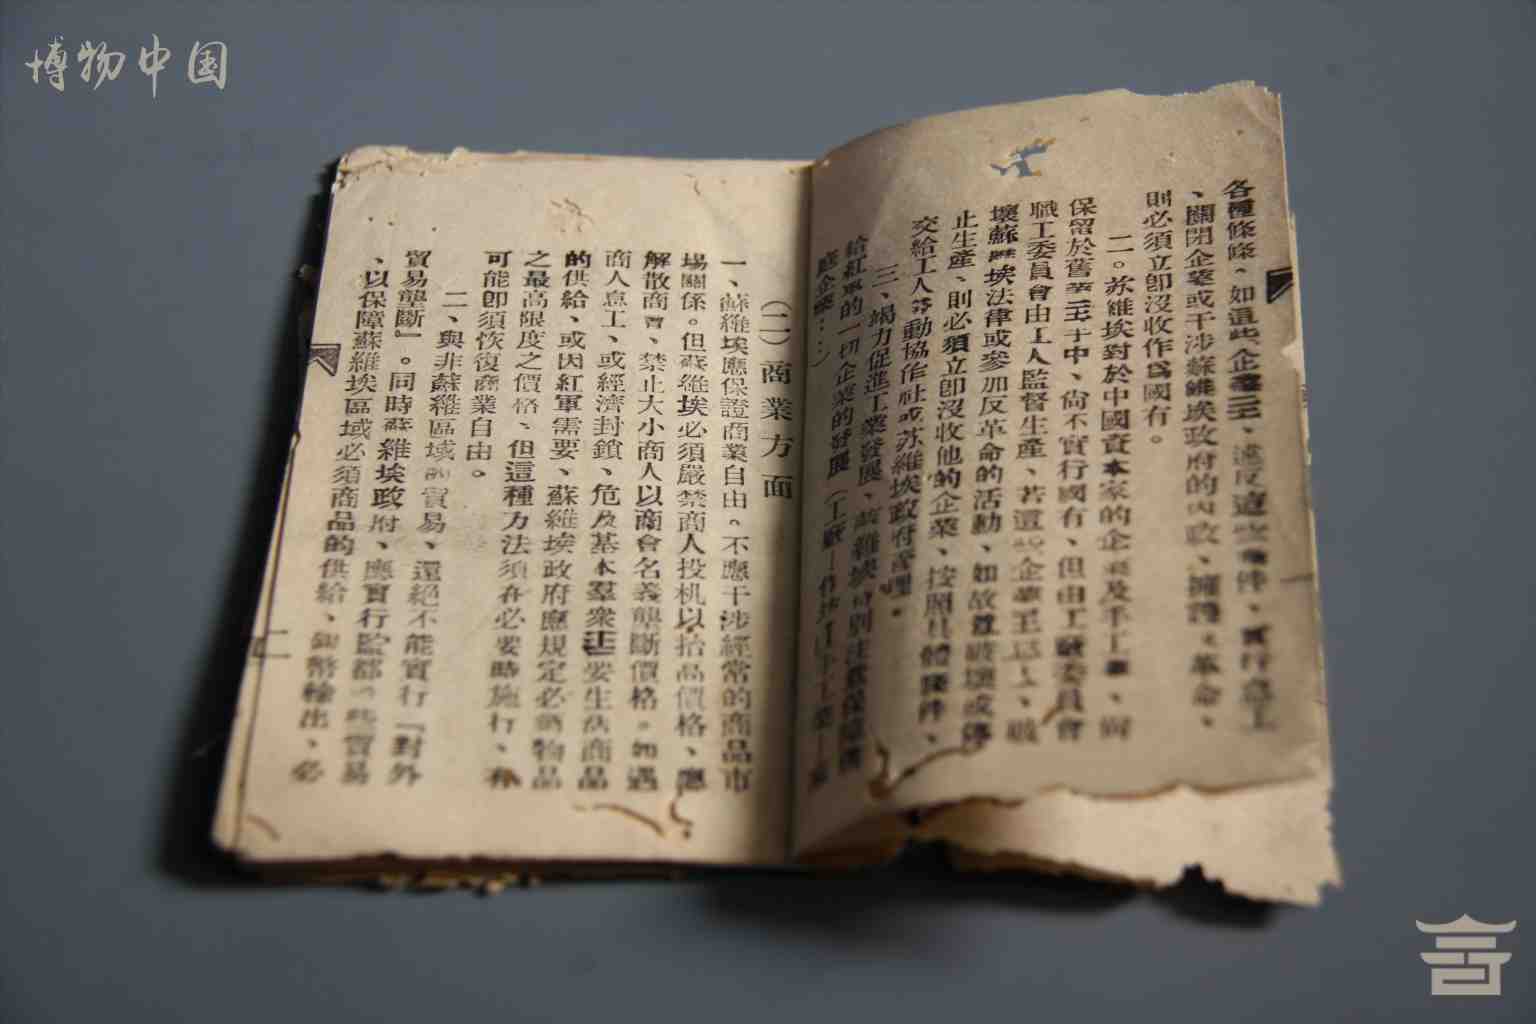 博物中国
各種條
、關閉企業或干涉蘇維埃政府的內政、擁護
則必須立卽沒收作爲國有。
二。苏維埃對於中國資本家的企業及手工業、尙
保留於舊業主手中、尙不實行國有、但由工厰委員會
職工委員會由工人監督生產、若這些企業主怠工、
壞蘇維埃法律或參加反革命的活動、如故意破壞或停
止生產、則必須立卽沒收他的企業、按照具體條件、
交給工人勞動協作社或苏維埃政府管理。
三、竭力促進工業發展、蘇維埃特別注意保障
給紅軍的一切企業的發展
(二)商業方面
一、蘇維埃應保證商業自由。不應干涉經常的商品市
場關係。但蘇維埃必須嚴禁商人投机以抬高價格、應
解散商會、禁止大小商人以商會名義壟斷價格。如遇
商人怠工、或經濟封鎖、危及基本羣衆主要生活商品
的供給、或因紅軍需要、蘇維埃政府應規定必須物品
之最高限度之價格、但這種方法須在必要時施行、有
可能卽須恢復商業自由。
二、與非蘇維區域的貿易、還絕不能實行『對外
貿易壟斷』。同時蘇維埃政府、應實行監督這些貿易
、以保障蘇維埃區域必須商品的供給、銀幣輸出、必
二